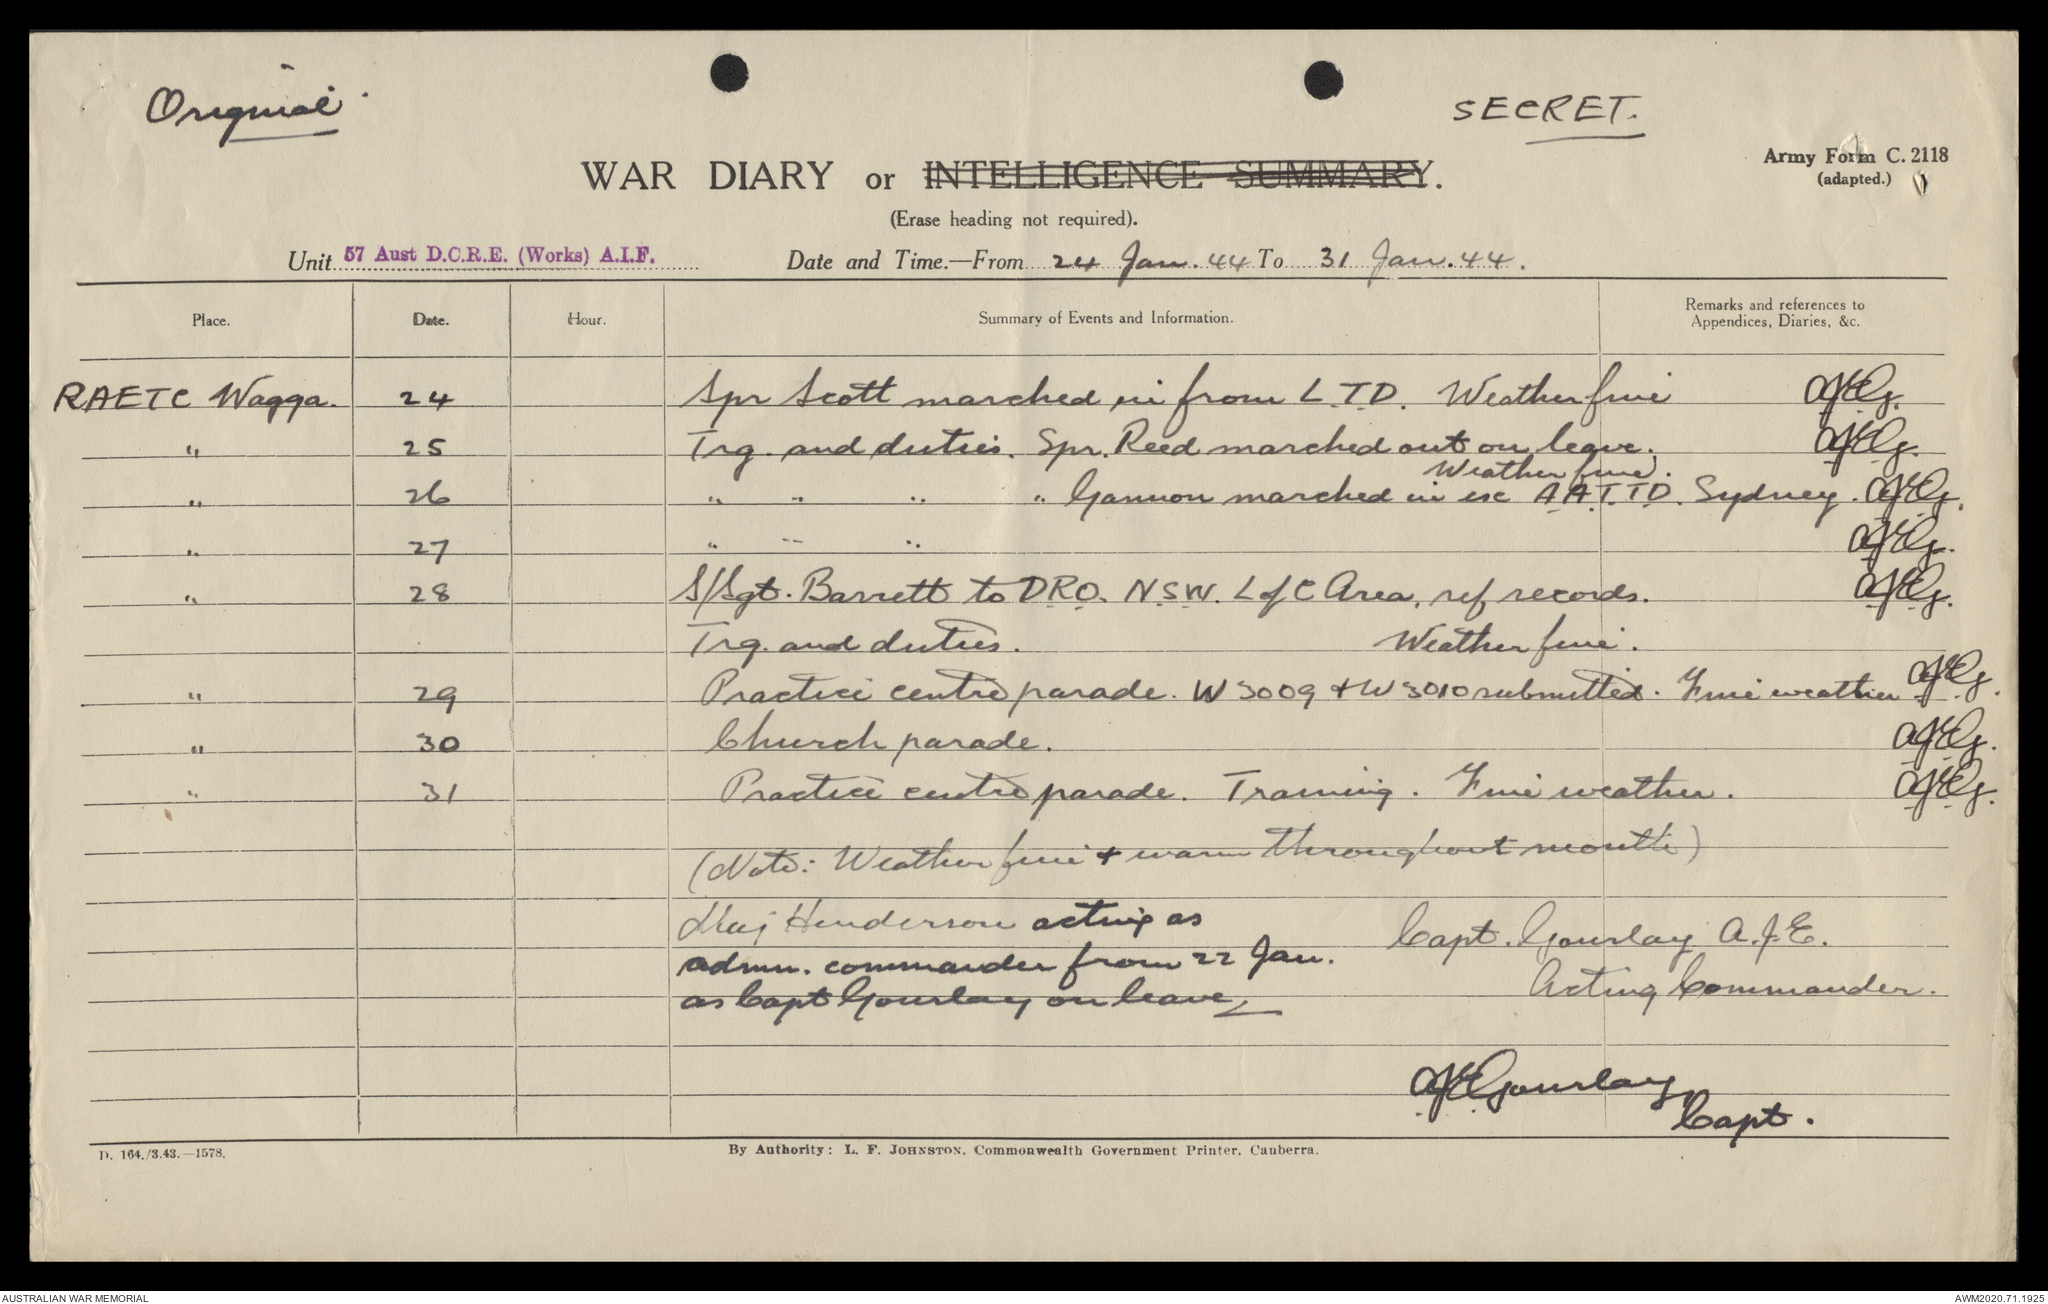 Original.
SECRET.
Army Form C. 2118
(adapted.)
WAR DIARY or INTELLIGENCE SUMMARY.
(Erase heading not required).
Unit 57 Aust D.C.R.E. (Works) A.I.F. Date and Time.—From 24 Jan. 44 To 31 Jan. 44.
Place. Date. Hour. Summary of Events and Information. Remarks and references to
Appendices, Diaries, &c.
RAETC Wagga. 24 Spr Scott marched in from L.T.D. Weather fine AJEG.
" 25 Trg. and duties. Spr. Reed marched out on leave. AJEG.
Weather fine.
" 26 " " " " Gannon marched in ex A.A.T.T.D. Sydney. AJEG.
" 27 " " " AJEG.
" 28 S/Sgt. Barrett to D.R.O. N.S.W. L of C Area, ref records. AJEG.
Trg. and duties. Weather fine.
" 29 Practice centre parade. W 3009 + W 3010 submitted. Fine weather AJEG.
" 30 Church parade. AJEG.
" 31 Practice centre parade. Training. Fine weather. AJEG.
(Note: Weather fine + warm throughout month)
Maj Henderson acting as
admn. commander from 22 Jan.
as Capt Gourlay on leave
Capt. Gourlay A.J.E.
Acting Commander.
AJEGourlay
Capt.
D. 164./3.43.—1578. By Authority: L. F. JOHNSTON, Commonwealth Government Printer, Canberra.
AUSTRALIAN WAR MEMORIAL AWM2020.71.1925